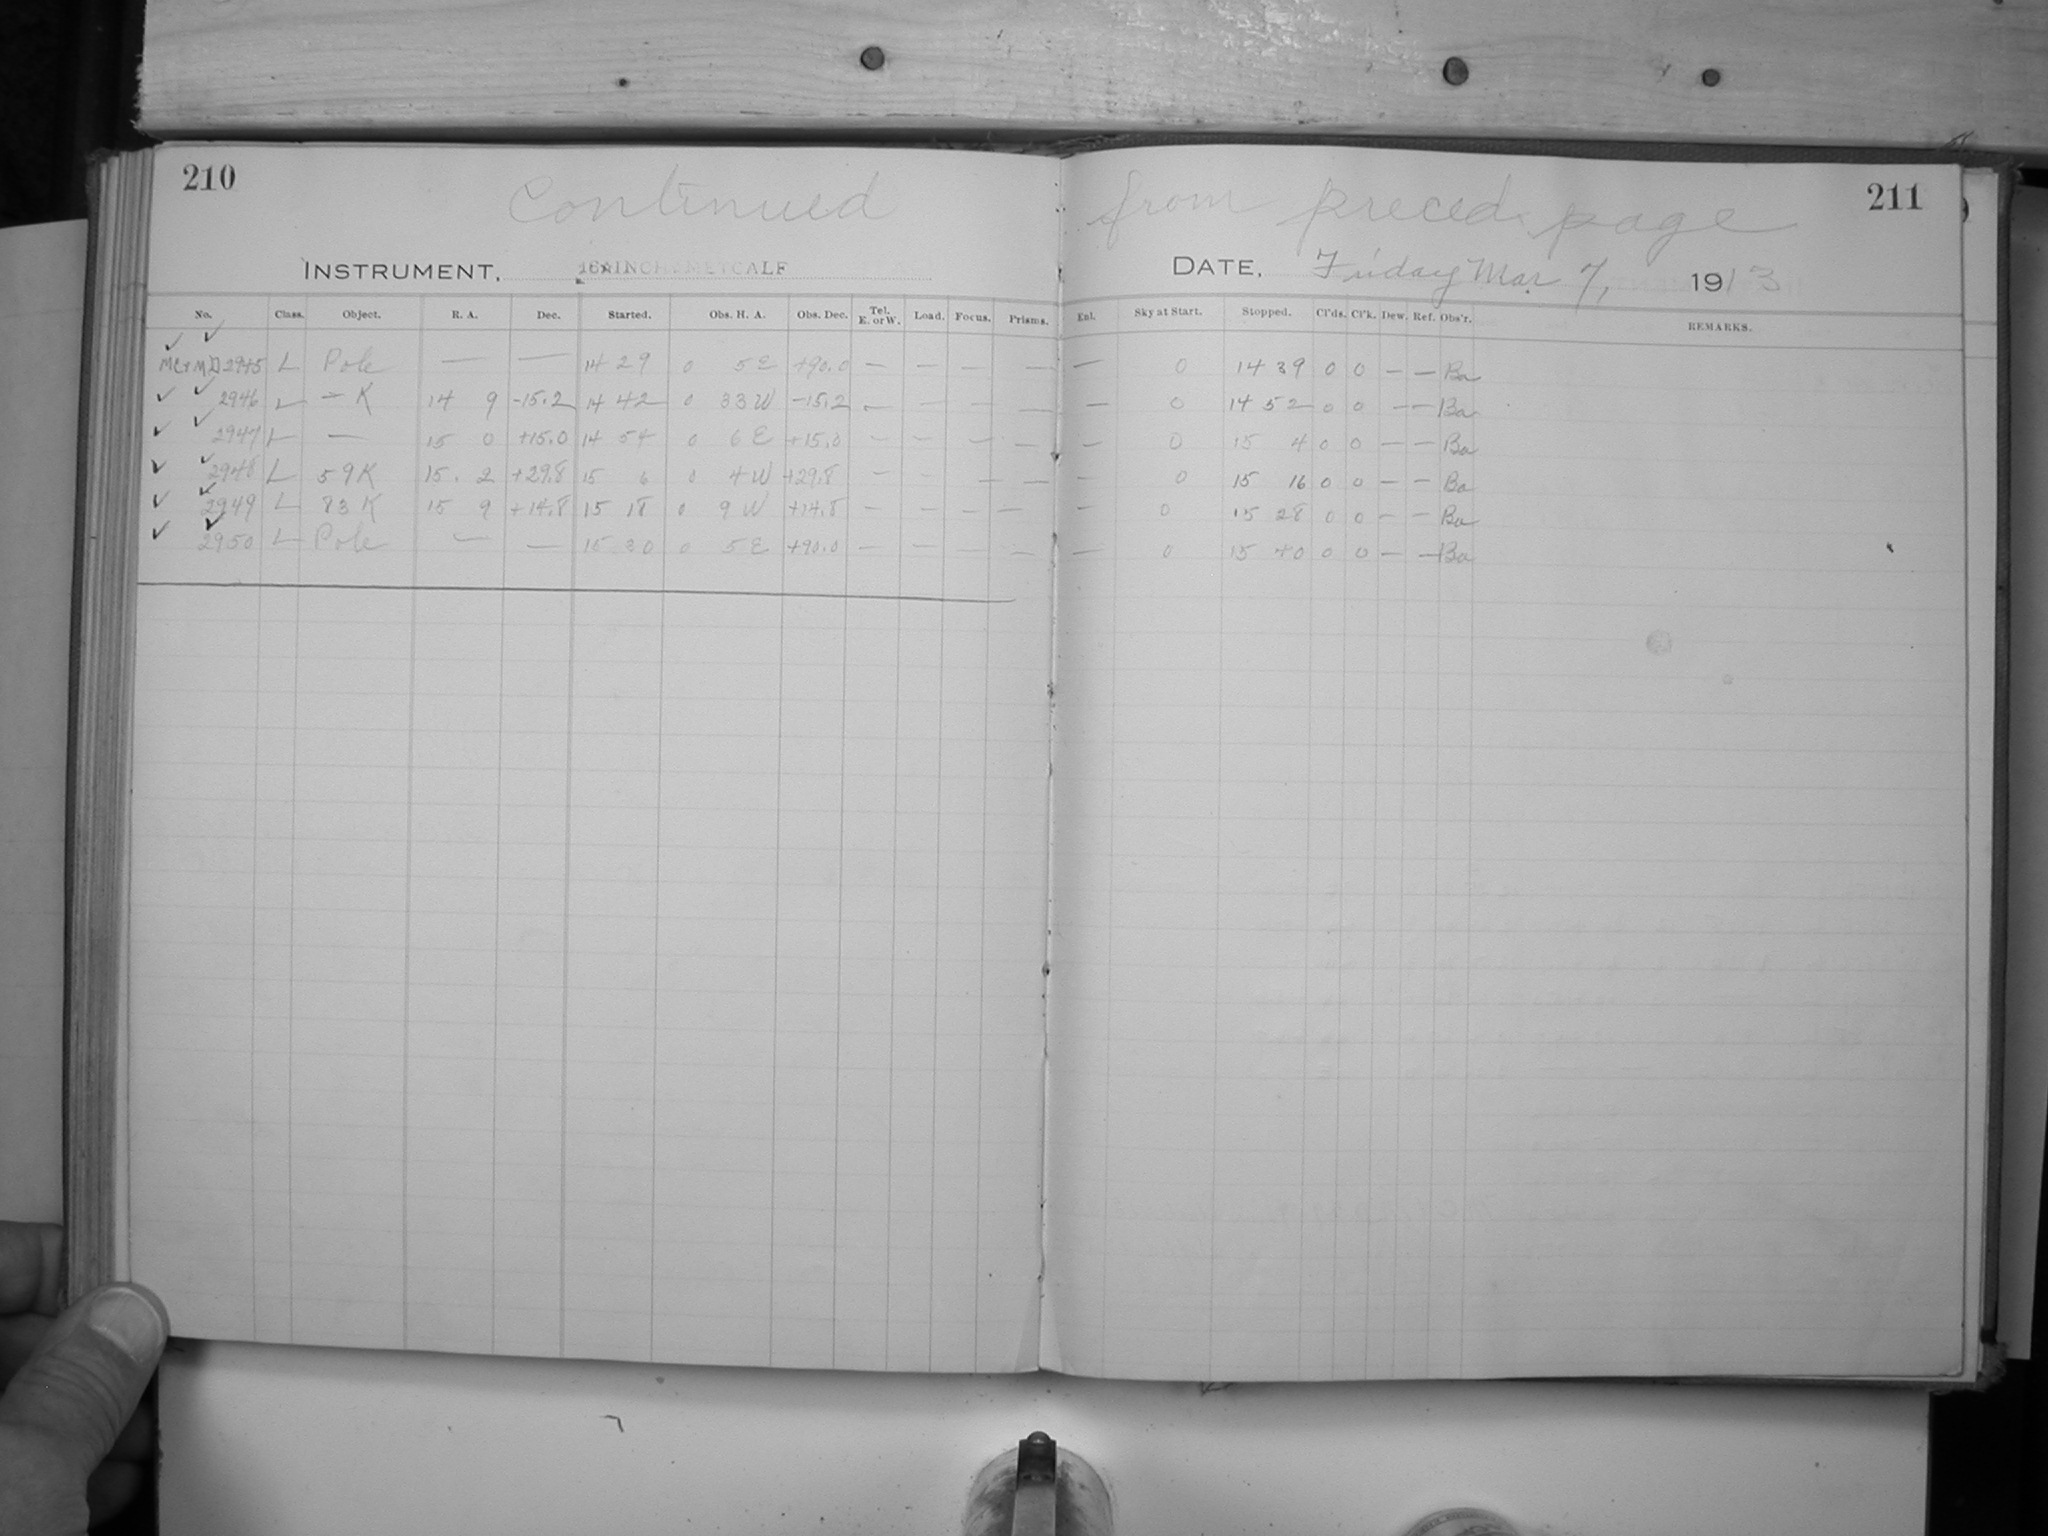 210
Continued from preced. page
211
INSTRUMENT, 16 INCH METCALF DATE, Friday Mar 7, 1913
No. Class. Object. R. A. Dec. Started. Obs. H. A. Obs. Dec. Tel. E. or W. Load. Focus. Prisms. Enl. Sky at Start. Stopped. Cl'ds. Cl'k. Dew. Ref. Obs'r. REMARKS.
✓ ✓
2945 L Pole — — 14 29 0 5 E +90.0 — — — — — 0 14 39 0 0 — — Ba
✓ ✓ 2946 L — K 14 9 -15.2 14 42 0 33 W -15.2 — — — — — 0 14 52 0 0 — — Ba
✓ ✓ 2947 L — 15 0 +15.0 14 54 0 6 E +15.0 — — — — — 0 15 4 0 0 — — Ba
✓ ✓ 2948 L 59 K 15. 2 +29.8 15 6 0 4 W +29.8 — — — — — 0 15 16 0 0 — — Ba
✓ ✓ 2949 L 83 K 15 9 +14.8 15 18 0 9 W +14.8 — — — — — 0 15 28 0 0 — — Ba
✓ ✓ 2950 L Pole — — 15 30 0 5 E +90.0 — — — — — 0 15 40 0 0 — — Ba